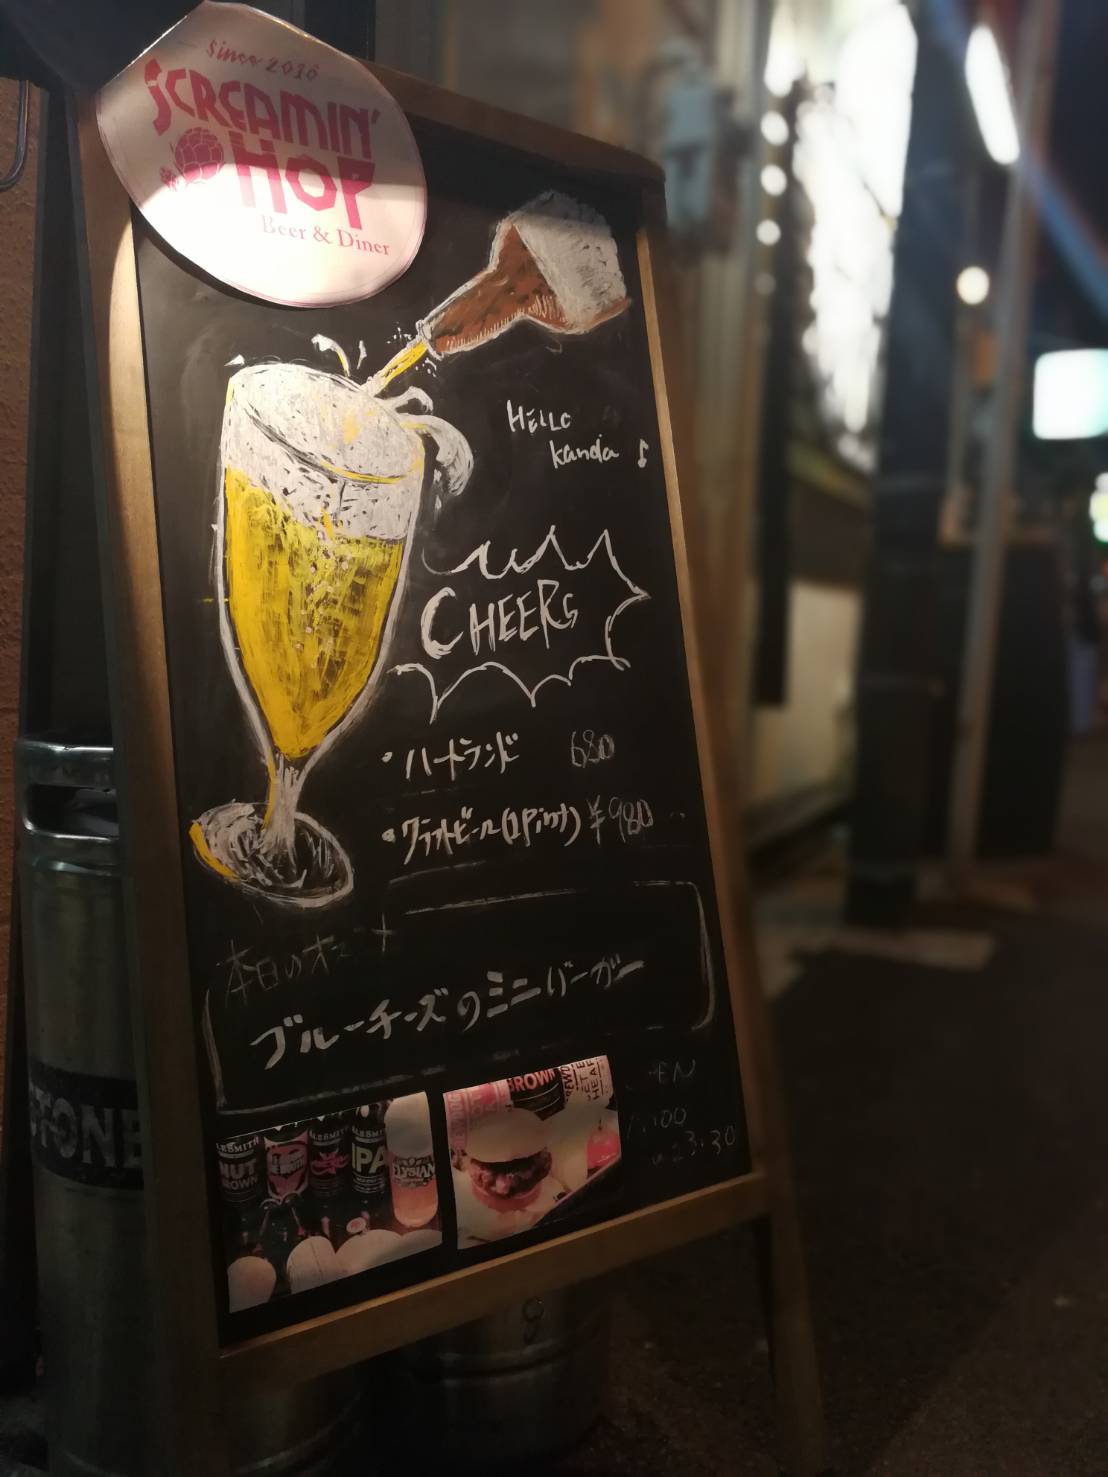 since 2016
SCREAMIN'
HOP
Beer & Diner
HELLO
kanda ♪
CHEERS
・ハートランド 680
・クラフトビール(1Pint) ¥980
本日のオススメ
ブルーチーズのミニバーガー
ALESMITH
NUT
BROWN
ALESMITH
IPA
ELYSIAN
BROWN
23:30
STONE
9